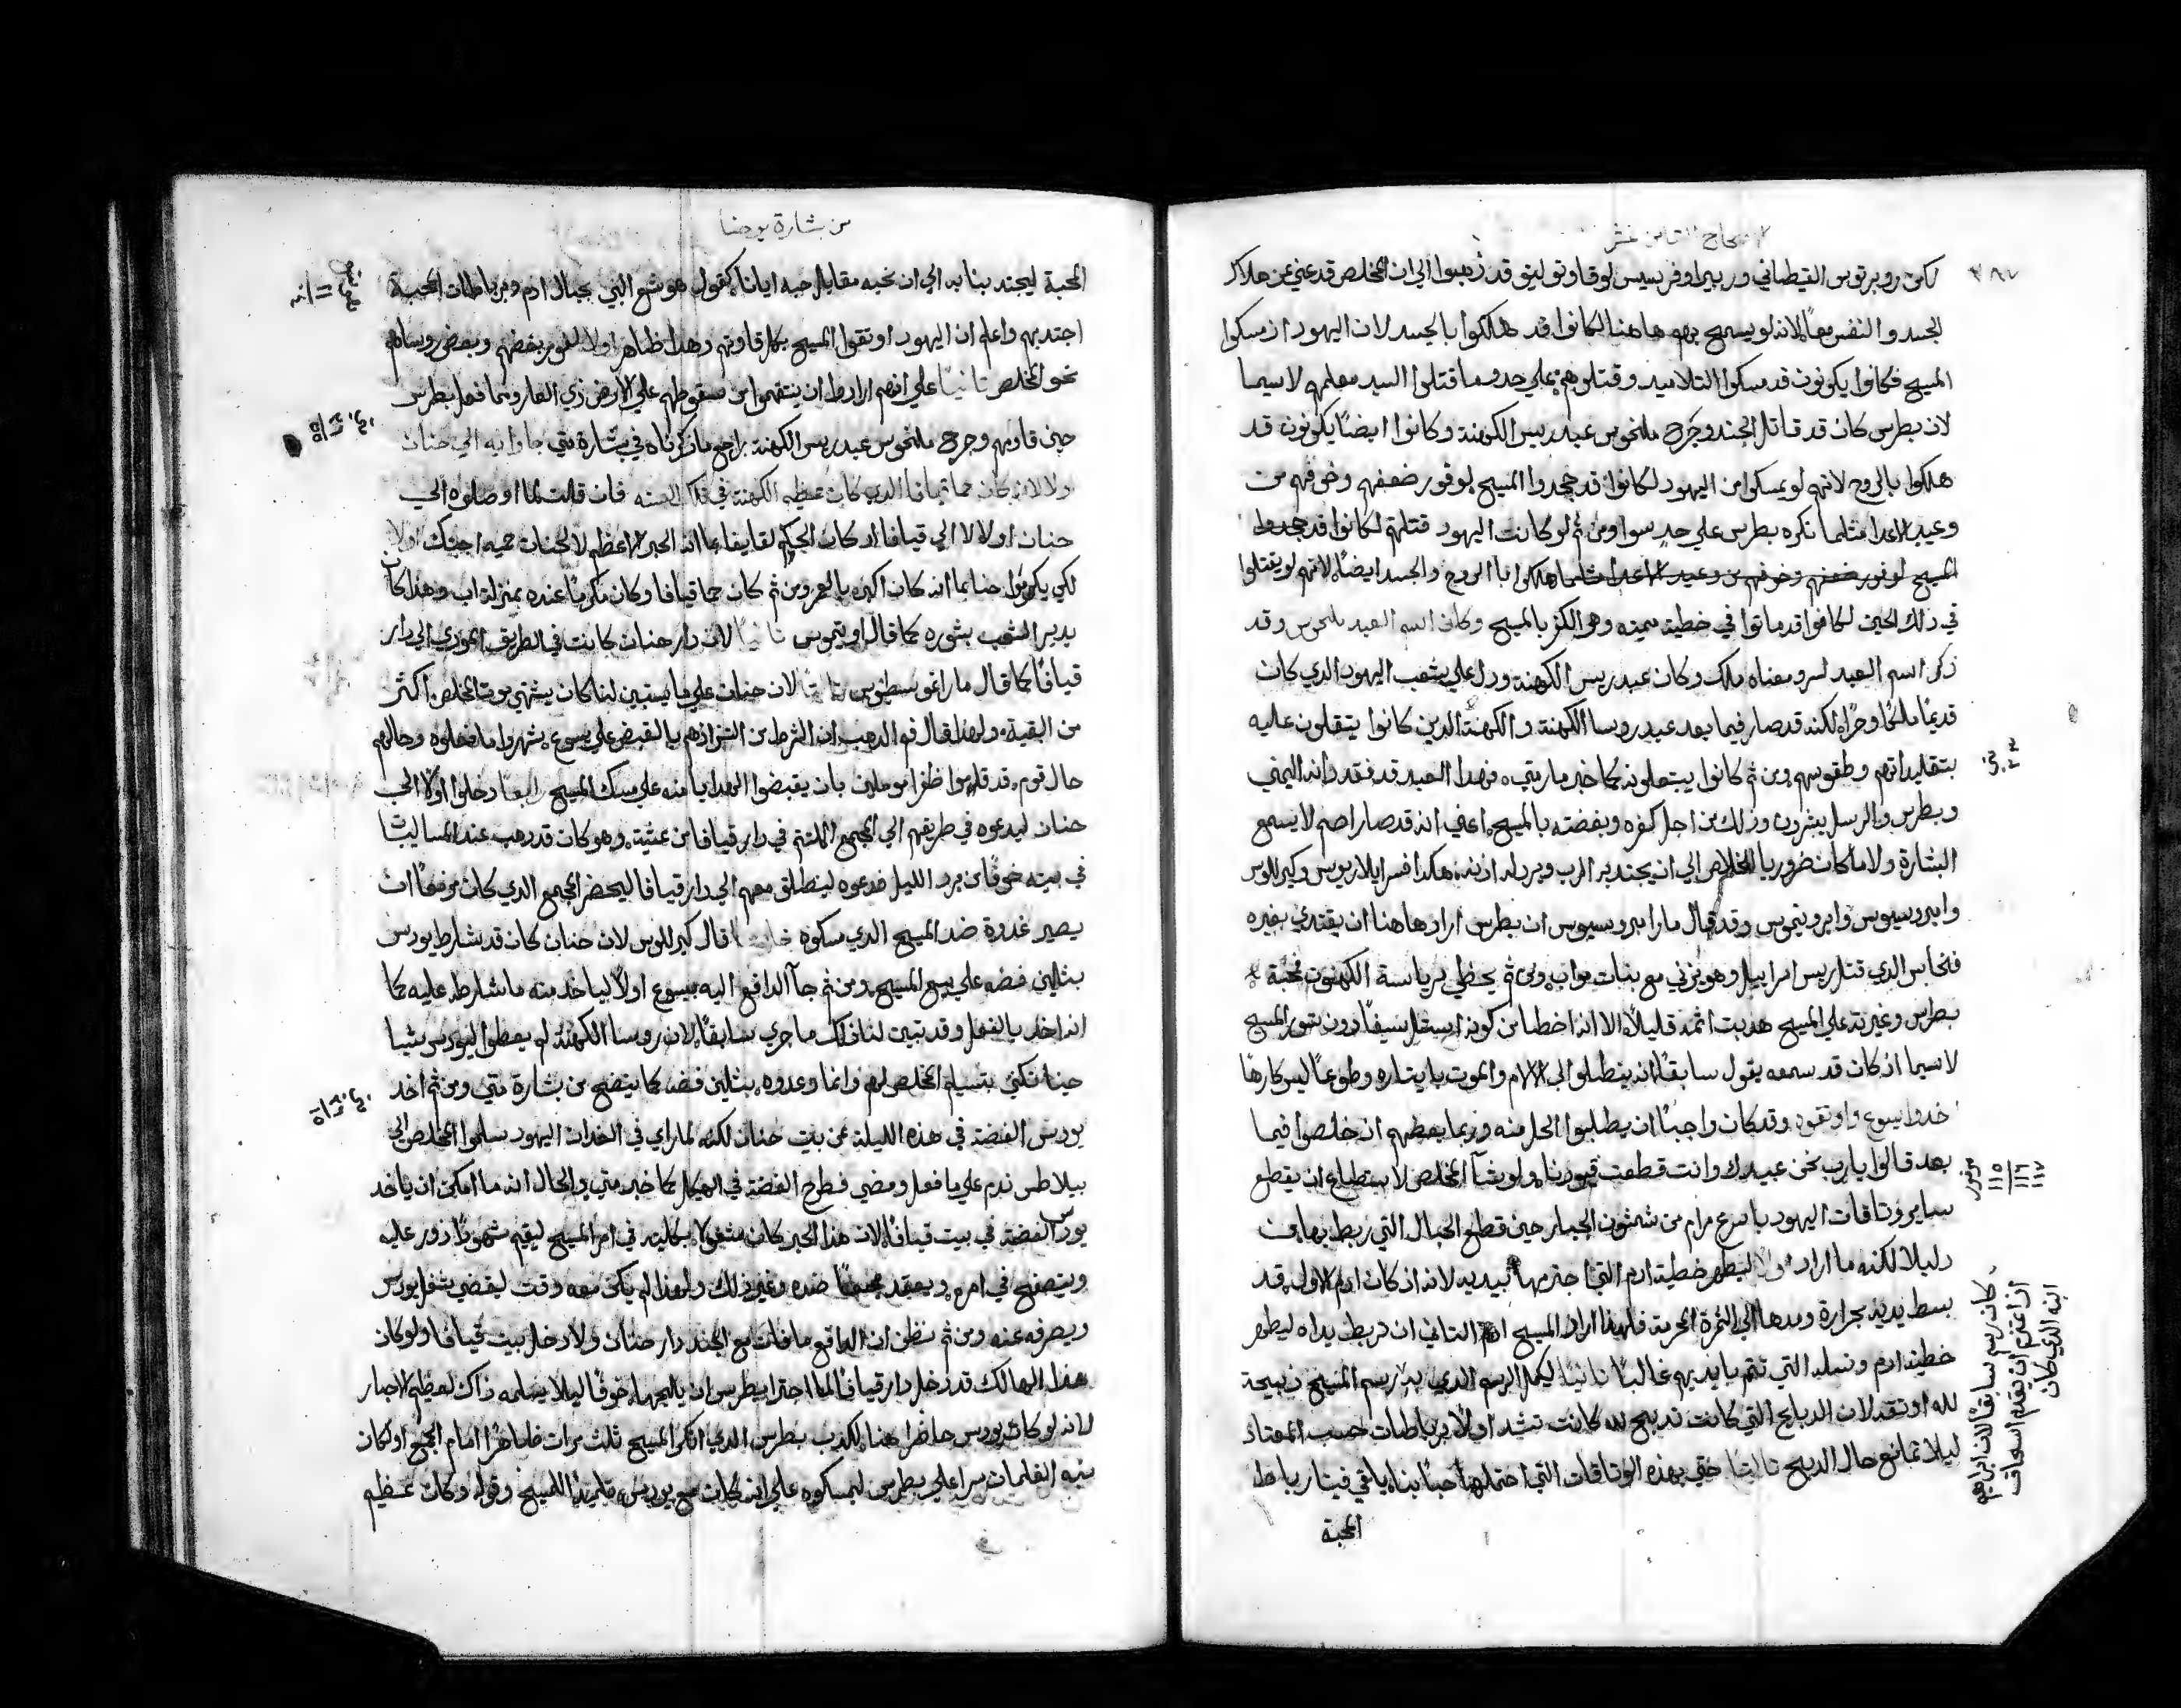 الاصحاح الثامن عشر
٢٨٧
لكن روبرتوس القيطاني وريبيرا وفرنسيس لوقا وتوليتو قد ذهبوا الي ان المخلص قد عني عن هلاك
الجسد والنفس معًا لانه لو يسمح بهم هاهنا لكانوا قد هلكوا بالجسد لان اليهود اذ مسكوا
المسيح فكانوا يكونون قد مسكوا التلاميد وقتلوهم علي حد وما قتلوا السيد معلمهم لاسيما
لان بطرس كان قد قاتل الجند وجرح ملخوس عبد ريس الكهنة وكانوا ايضًا يكونون قد
هلكوا بالروح لانهم لو يمسكوا من اليهود لكانوا قد جحدوا المسيح لوفور ضعفهم وخوفهم من
وعيد الاعدا مثلما نكره بطرس علي حدٍ سوا ومن ثم لو كانت اليهود قتلتهم لكانوا قد جحدوا
المسيح لوفور ضعفهم وخوفهم من وعيد الاعدا مثلما هلكوا بالروح والجسد ايضًا لانهم لو يقتلوا
في ذلك الحين لكانوا قد ماتوا في خطية مميته وهو الكفر بالمسيح وكان اسم العبد ملخوس وقد
ذكر اسم العبد لسر ومعناه ملك وكان عبد ريس الكهنة ودل علي شعب اليهود الدي كان
قديمًا ملكًا وحرًا لكنه قد صار فيما بعد عبد روسا الكهنة والكهنة الدين كانوا يتقلون عليه
بتقليداتهم وطقوسهم ومن ثم كانوا يبتعلونه كما خبر مار متي فهدا العبد قد فقد وادنه اليمني
وبطرس والرسل يبشرون ودلك من اجل كفره وبغضته بالمسيح اعني انه قد صار اصم لا يسمع
البشارة ولاما كان ضروريا لخلاص الي ان يجتدبه الرب ويرد له ادنه هكدا فسر ايلاريوس وكيرللوس
وامبروسيوس وايرونيموس وقد قال مار امبروسيوس ان بطرس اراد هاهنا ان يقتدي بغيره
فنحاس الدي قتل ريس اسراييل وهو يزني مع بنات مواب ومن ثم يحظي برياسة الكهنوت فمحبة
بطرس وغيرته علي المسيح هدبت اثمه قليلاً الا انه اخطا من كونه استعمل سيفًا دون شور المسيح
لاسيما اذ كان قد سمعه يقول سابقًا انه ينطلق الي الالام والموت بايثاره وطوعًا ليس كارهًا
اخدوا يسوع واوثقوه وقد كان واجبًا ان يطلبوا الحل منه وربما بعضهم ان خلصوا فيما
بعد قالوا يارب نحن عبيدك وانت قطعت قيودنا ولو شآ المخلص لا ستطاع ان يقطع
ساير وثاقات اليهود باسرع مرام من شمشون الجبار حين قطع الحبال التي ربط بها من
دليلا لكنه ما اراد اولاً ليطهر خطية ادم التي اجترمها بيديه لانه اذ كان ادم الاول قد
بسط يديه بجرارة ومدها الي الثمرة المحرمة فلهذا اراد المسيح ادم التاني ان تربط يداه ليطهر
خطية ادم ونسله التي تتم بايديهم غالبًا تانيًا ليكمل الرسم الدي به رسم المسيح ذبيحة
لله اوثقه لان الدبايح التي كانت تدبح لله كانت تشد اولاً برباطات حسب المعتاد
ليلا تمانع حال الدبح تالتًا حتي بهذه الوثاقات التي احتملها حبًا بنا يلقي فينا رباط
المحبة
متي ٢٣
مزمور ١١٥ ١١٦ ١١٧
كان رسم سابقًا لان ابراهيم
اذ اعتزم ان يقدم اسحاق
ابنه الدي كان
من بشارة يوحنا
المحبة ليجتدبنا به الي ان نحبه مقابل حبه ايانا كقول هوشع النبي بحبال ادم ومن رباطات المحبة
اجتدبهم واعلم ان اليهود اوتقوا المسيح بكل قاوتهم وهدا ظاهر اولا لفور بغضهم وبغض روسايهم
نحو المخلص تانيًا علي انهم ارادوا ان ينتقموا من سقوطهم علي الارض ذي العار ومما فعل بطرس
حين قاومهم وجرح ملخوس عبد ريس الكهنة راجع ما ذكرناه في بشارة متي جاوا به الي حنان
اولا لانه كان حما قيافا الدي كان عظيم الكهنة في تلك السنه فان قلت لما اوصلوه الي
حنان اولا لا الي قيافا اد كان الحكم لقايفا بما انه الحبر الاعظم لا لحنان حميه اجبتك اولا
لكي يكرموا حنا بما انه كان اكبره بالعمر ومن ثم كان حما قيافا وكان مكرمًا عنده بمنزلة اب وهدا كان
يدبر الشعب بشوره كما قال اوتيموس تانيًا لان دار حنان كانت في الطريق المودي الي دار
قيافا كما قال مار اغوسطينوس تالتًا لان حنان علي ما يستبين لنا كان يشتهي موت المخلص اكثر
من البقية ولهدا قال فم الدهب ان الشرط من التزازهم بالقبض علي يسوع يشهروا ما فعلوه وحالهم
حال قوم قد قلبوا ظفرا موملين بان يقبضوا الهدايا منه علي مسك المسيح رابعًا دخلوا اولاً الي
حنان ليدعوه في طريقهم الي المجمع الملتم في دار قيافا من عشية وهو كان قد دهب عند المسا ليبات
في بيته خوفًا من برد الليل فدعوه لينطلق معهم الي دار قيافا ليحضر المجمع الدي كان مزمعًا ان
يصير غدوة ضد المسيح الدي مسكوه خامسًا قال كيرللوس لان حنان كان قد شارط يودس
بثلثين فضه علي بيع المسيح ومن ثم جآ الدافع اليه بيسوع اولاً لياخد منه ما شارطه عليه كما
انه اخد بالفعل وقد تبين لنا ذلك ما جري سابقًا لان روسا الكهنة لم يعطوا ليودس شيا
حينا نكث بتسليم المخلص لهم وانما وعدوه بثلثين فضه كما يتضح من بشارة متي ومن ثم اخد
يودس الفضة في هذه الليلة من بيت حنان لكنه لما راي في الغدات اليهود سلموا المخلص الي
بيلاطس ندم علي ما فعل ومضي فطرح الفضة في الهيكل كما خبر متي والحال انه ما امكن ان ياخد
يودس الفضة في بيت قيافا لان هذا الحبر كان مشغولا بكليته في امر المسيح ليقيم شهودًا زور عليه
ويتصفح في امره ويعقد مجمعًا ضده وغير ذلك ولهذا لم يكن معه وقت ليقضي شغل يودس
ويصرفه عنه ومن ثم نظن ان الدافع ما فات مع الجند دار حنان ولا دخل بيت قيافا ولو كان
هذا الهالك قد دخل دار قيافا لما اجترا بطرس ان يلجها خوفًا ليلا يسلمه ذاك لعظيم الاحبار
لانه لو كان يودس حاضرا هنا لكدب بطرس الدي انكر المسيح ثلث مرات ظاهرًا امام الجمع او لكان
ينبه الغلمان سرا علي بطرس ليمسكوه علي انه كان مع يودس تلميذًا للمسيح وقوله وكان عظيم